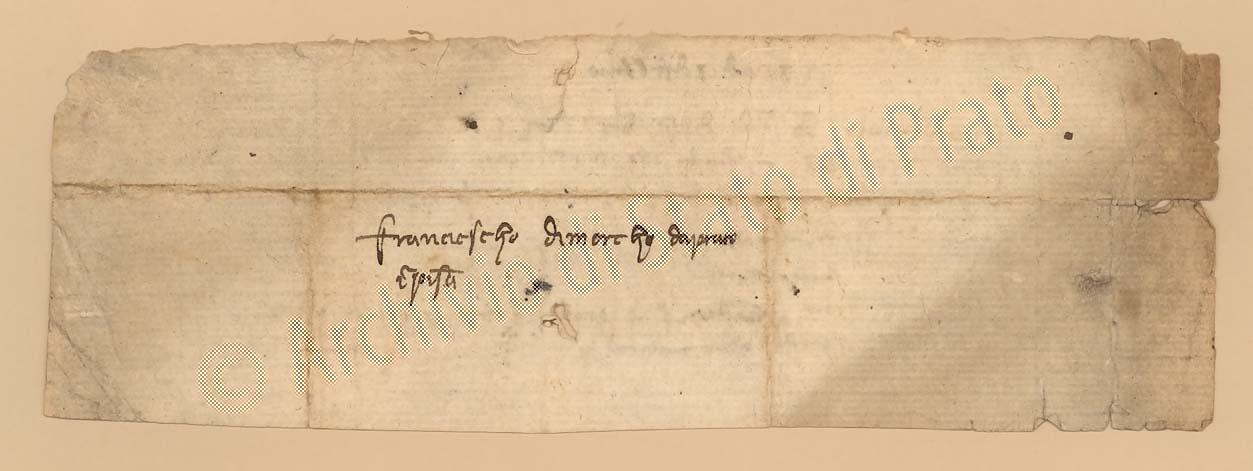 Franciescho dimarcho daprato
in pisa
© Archivio di Stato di Prato